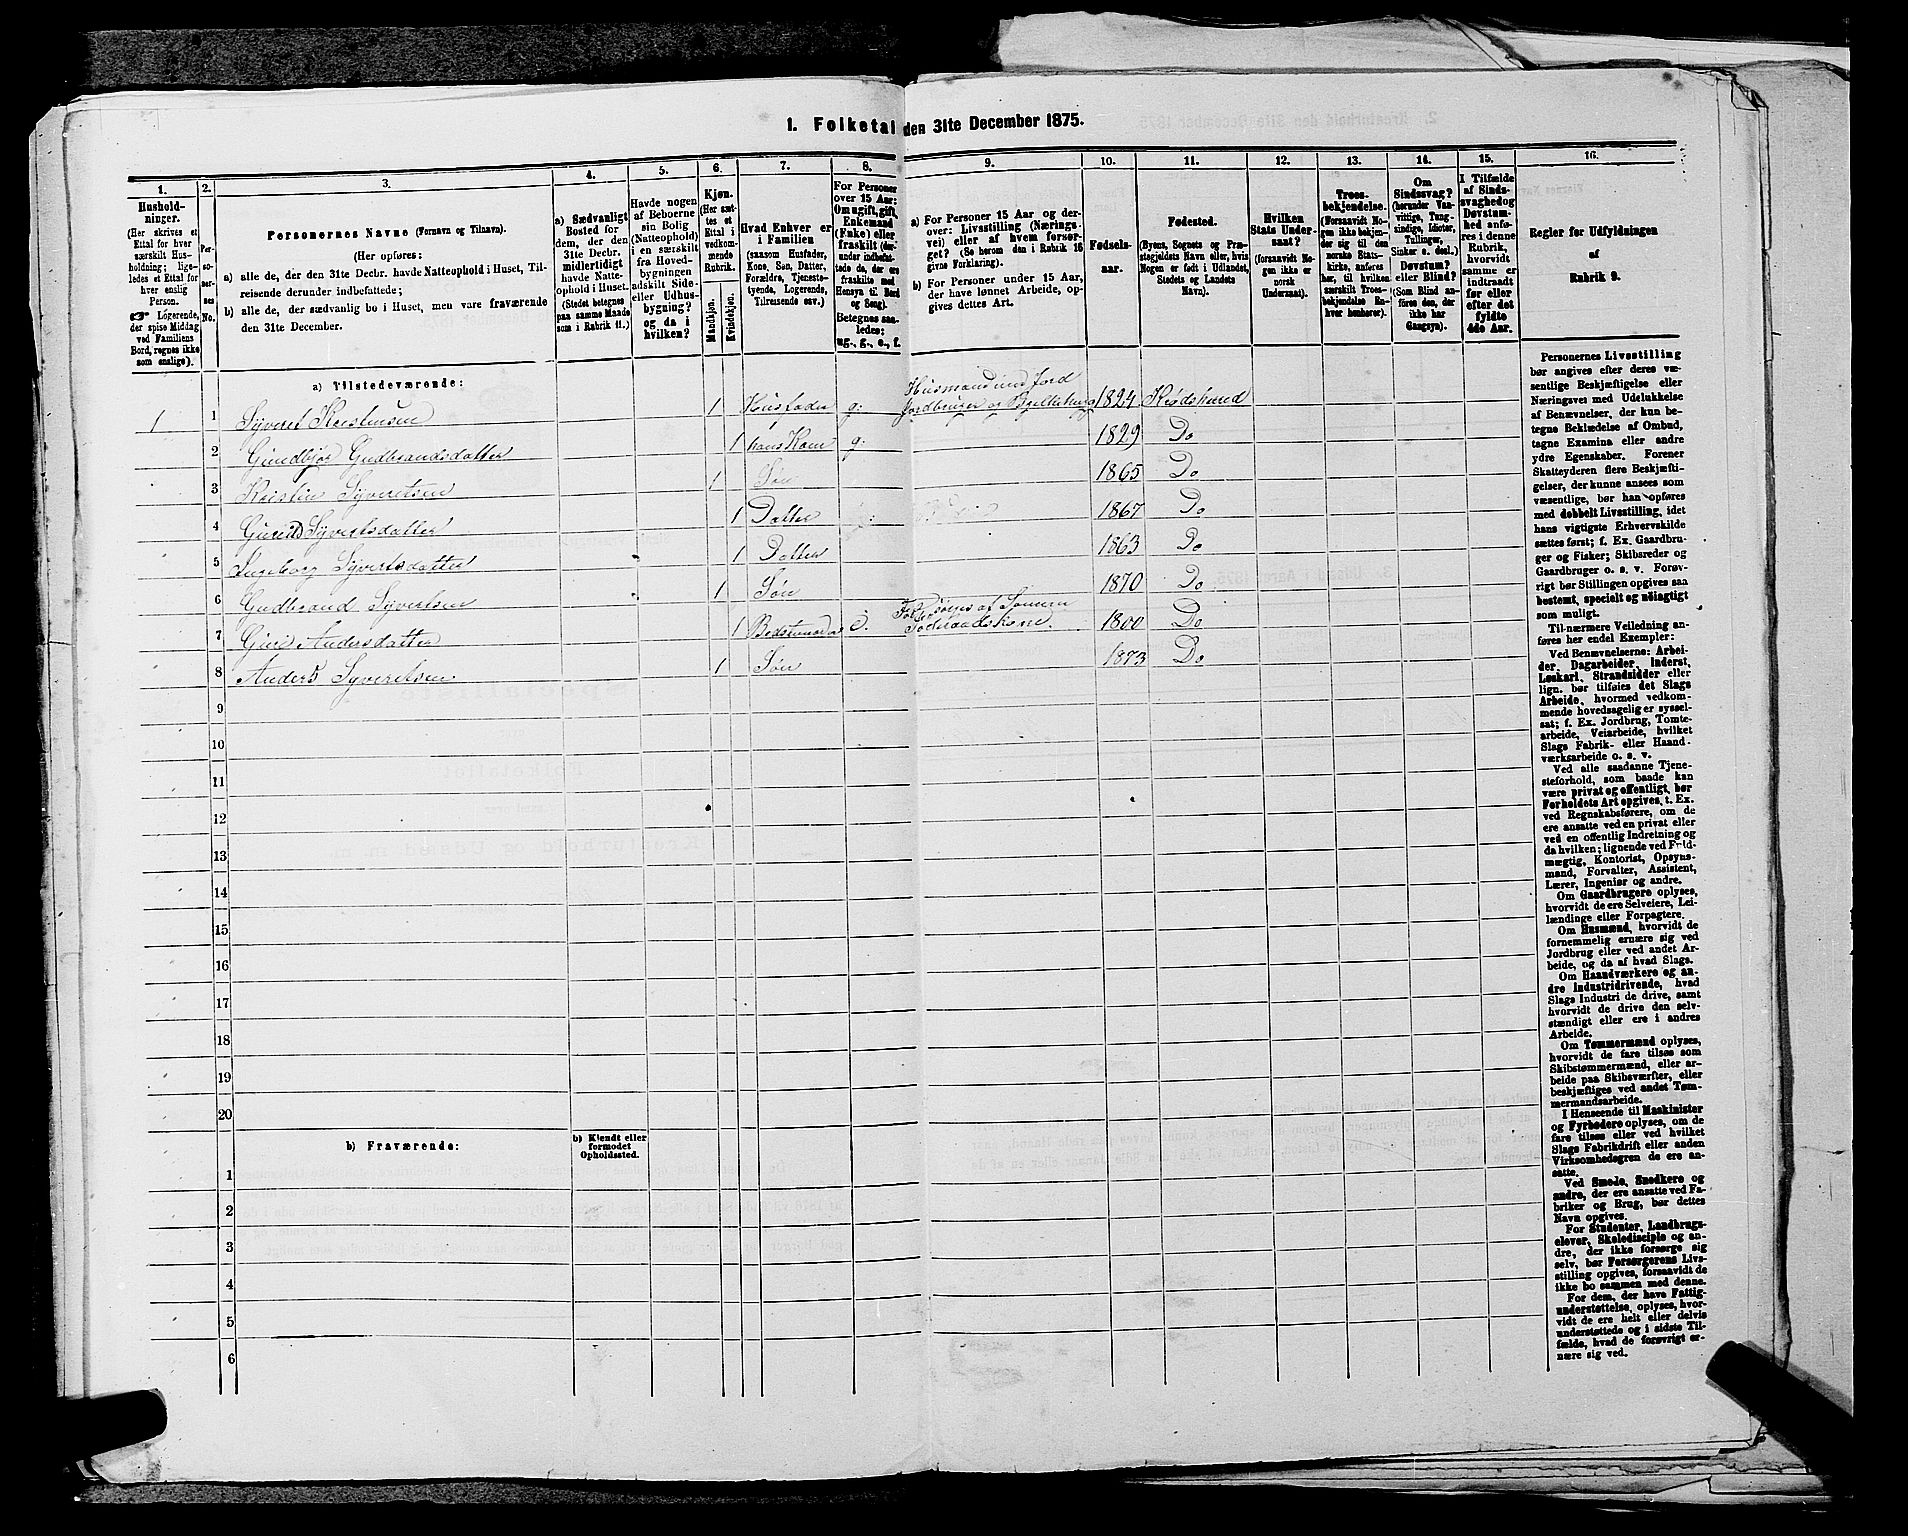 1. Folketal den 31te December 1875.
1. 2. 3. 4. 5. 6. 7. 8. 9. 10. 11. 12. 13. 14. 15. 16.
Hushold-
ninger.
(Her skrives et
Ettal for hver
særskilt Hus-
holdning; lige-
ledes et Ettal for
hver enslig
Person.
☞ Logerende,
der spise Middag
ved Familiens
Bord, regnes ikke
som enslige).
Per-
so-
ner-
nes
No.
Personernes Navne (Fornavn og Tilnavn).
(Her opføres:
a) alle de, der den 31te Decbr. havde Natteophold i Huset, Til-
reisende derunder indbefattede;
b) alle de, der sædvanlig bo i Huset, men vare fraværende
den 31te December.
a) Sædvanligt
Bosted for
dem, der den
31te Decbr.
midlertidigt
havde Natte-
ophold i Huset.
(Stedet betegnes
paa samme Maade
som i Rubrik 11.)
Havde nogen
af Beboerne
sin Bolig
(Natteophold)
i en særskilt
fra Hoved-
bygningen
adskilt Side-
eller Udhus-
bygning?
og da i
hvilken?
Kjøn.
(Her sæt-
tes et
Ettal i
vedkom-
mende
Rubrik.
Mandkjøn.
Kvindekjøn.
Hvad Enhver er
i Familien
(saasom Husfader,
Kone, Søn, Datter,
Forældre, Tjeneste-
tyende, Logerende,
Tilreisende osv.)
For Personer
over 15 Aar:
Om ugift, gift,
Enkemand
(Enke) eller
fraskilt (der-
under indbefat-
tede de, der ere
fraskilte med
Hensyn til Bord
og Seng).
Betegnes saa-
ledes:
ug., g., e., f.
a) For Personer 15 Aar og der-
over: Livsstilling (Nærings-
vei) eller af hvem forsør-
get? (Se herom den i Rubrik 16
givne Forklaring).
b) For Personer under 15 Aar,
der have lønnet Arbeide, op-
gives dettes Art.
Fødsels-
aar.
Fødested.
(Byens, Sognets og Præ-
stegjeldets Navn eller, hvis
Nogen er født i Udlandet,
Stedets og Landets
Navn).
Hvilken
Stats Under-
saat?
(forsaavidt No-
gen ikke er
norsk
Undersaat).
Troes-
bekjendelse.
(Forsaavidt No-
gen ikke bekjen-
der sig til den
norske Stats-
kirke, anføres
her, til hvilken
særskilt Troes-
bekjendelse En-
hver henhører).
Om
Sindssvag?
(herunder Van-
vittige, Tung-
sindige, Idioter,
Tullinger,
Sinker o. desl.).
Døvstum?
eller Blind?
(Som Blind an-
føres den, der
ikke har
Gangsyn).
I Tilfælde
af Sinds-
svaghed og
Døvstum-
hed anfø-
res i denne
Rubrik,
hvorvidt
samme er
indtraadt
før eller
efter det
fyldte
4de Aar.
Regler for Udfyldningen
af
Rubrik 9.
a) Tilstedeværende:
1 1 Syvert Kristensen 1 Husfader g: Husmand med Jord
Jordbruger og 1824 Krødshered
2 Gundbjør Gudbrandsdatter 1 hans Kone g: 1829 Do
3 Kristen Syvertsen 1 Søn 1865 Do
4 Syvertsdatter 1 Datter 1867 Do
5 Ingeborg Syvertsdatter 1 Datter 1863 Do
6 Gudbrand Syvertsen 1 Søn 1870 Do
7 Guri Andersdatter 1 e. Forsørges af Sønnen
Føderaadskone. 1800 Do
8 Anders Syvertsen 1 Søn 1873 Do
9
10
11
12
13
14
15
16
17
18
19
20
b) Fraværende:
b) Kjendt eller
formodet
Opholdssted.
1
2
3
4
5
6
Personernes Livsstilling
bør angives efter deres væ-
sentlige Beskjæftigelse eller
Næringsvei med Udelukkelse
af Benævnelser, der kun be-
tegne Beklædelse af Ombud,
tagne Examina eller andre
ydre Egenskaber. Forener
Skatteyderen flere Beskjæfti-
gelser, der kunne ansees som
væsentlige, bør han opføres
med dobbelt Livsstilling, idet
hans vigtigste Erhvervskilde
sættes først; f. Ex. Gaardbru-
ger og Fisker; Skibsreder og
Gaardbruger o. s. v. Forøv-
rigt bør Stillingen opgives saa
bestemt, specielt og nøiagtigt
som muligt.
Til nærmere Veiledning an-
føres her endel Exempler:
Ved Benævnelserne: Arbei-
der, Dagarbeider, Inderst,
Løskarl, Strandsidder eller
lign. bør tilføies det Slags
Arbeide, hvormed vedkom-
mende hovedsagelig er syssel-
sat; f. Ex. Jordbrug, Tomte-
arbeide, Veiarbeide, hvilket
Slags Fabrik- eller Haand-
værksarbeide o. s. v.
Ved alle saadanne Tjene-
steforhold, som baade kan
være privat og offentligt, bør
Forholdets Art opgives, t. Ex.
ved Regnskabsførere, om de
ere ansatte ved en privat eller
ved en offentlig Indretning og
da hvilken; lignende ved Fuld-
mægtig, Kontorist, Opsyns-
mand, Forvalter, Assistent,
Lærer, Ingeniør og andre.
Om Gaardbrugere oplyses,
hvorvidt de ere Selveiere, Lei-
lændinge eller Forpagtere.
Om Husmænd, hvorvidt de
fornemmelig ernære sig ved
Jordbrug eller ved andet Ar-
beide, og da af hvad Slags.
Om Haandværkere og an-
dre Industridrivende, hvad
Slags Industri de drive, samt
hvorvidt de drive den selv-
stændigt eller ere i andres
Arbeide.
Om Tømmermænd oplyses,
hvorvidt de fare tilsøs som
Skibstømmermænd, eller ar-
beide paa Skibsværfter, eller
beskjæftiges ved andet Tøm-
mermandsarbeide.
I Henseende til Maskinister
og Fyrbødere oplyses, om de
fare tilsøs eller ved hvilket
Slags Fabrikdrift eller anden
Virksomhedsgren de ere an-
satte.
Ved Smede, Snedkere og
andre, der ere ansatte ved Fa-
briker og Brug, bør dettes
Navn opgives.
For Studenter, Landbrugs-
elever, Skoledisciple og an-
dre, der ikke forsørge sig
selv, bør Forsørgerens Livs-
stilling opgives, forsaavidt de
ikke bo sammen med denne.
For dem, der have Fattig-
understøttelse, oplyses, hvor-
vidt de ere helt eller delvis
understøttede og i sidste Til-
fælde, hvad de forøvrigt er-
nære sig ved.